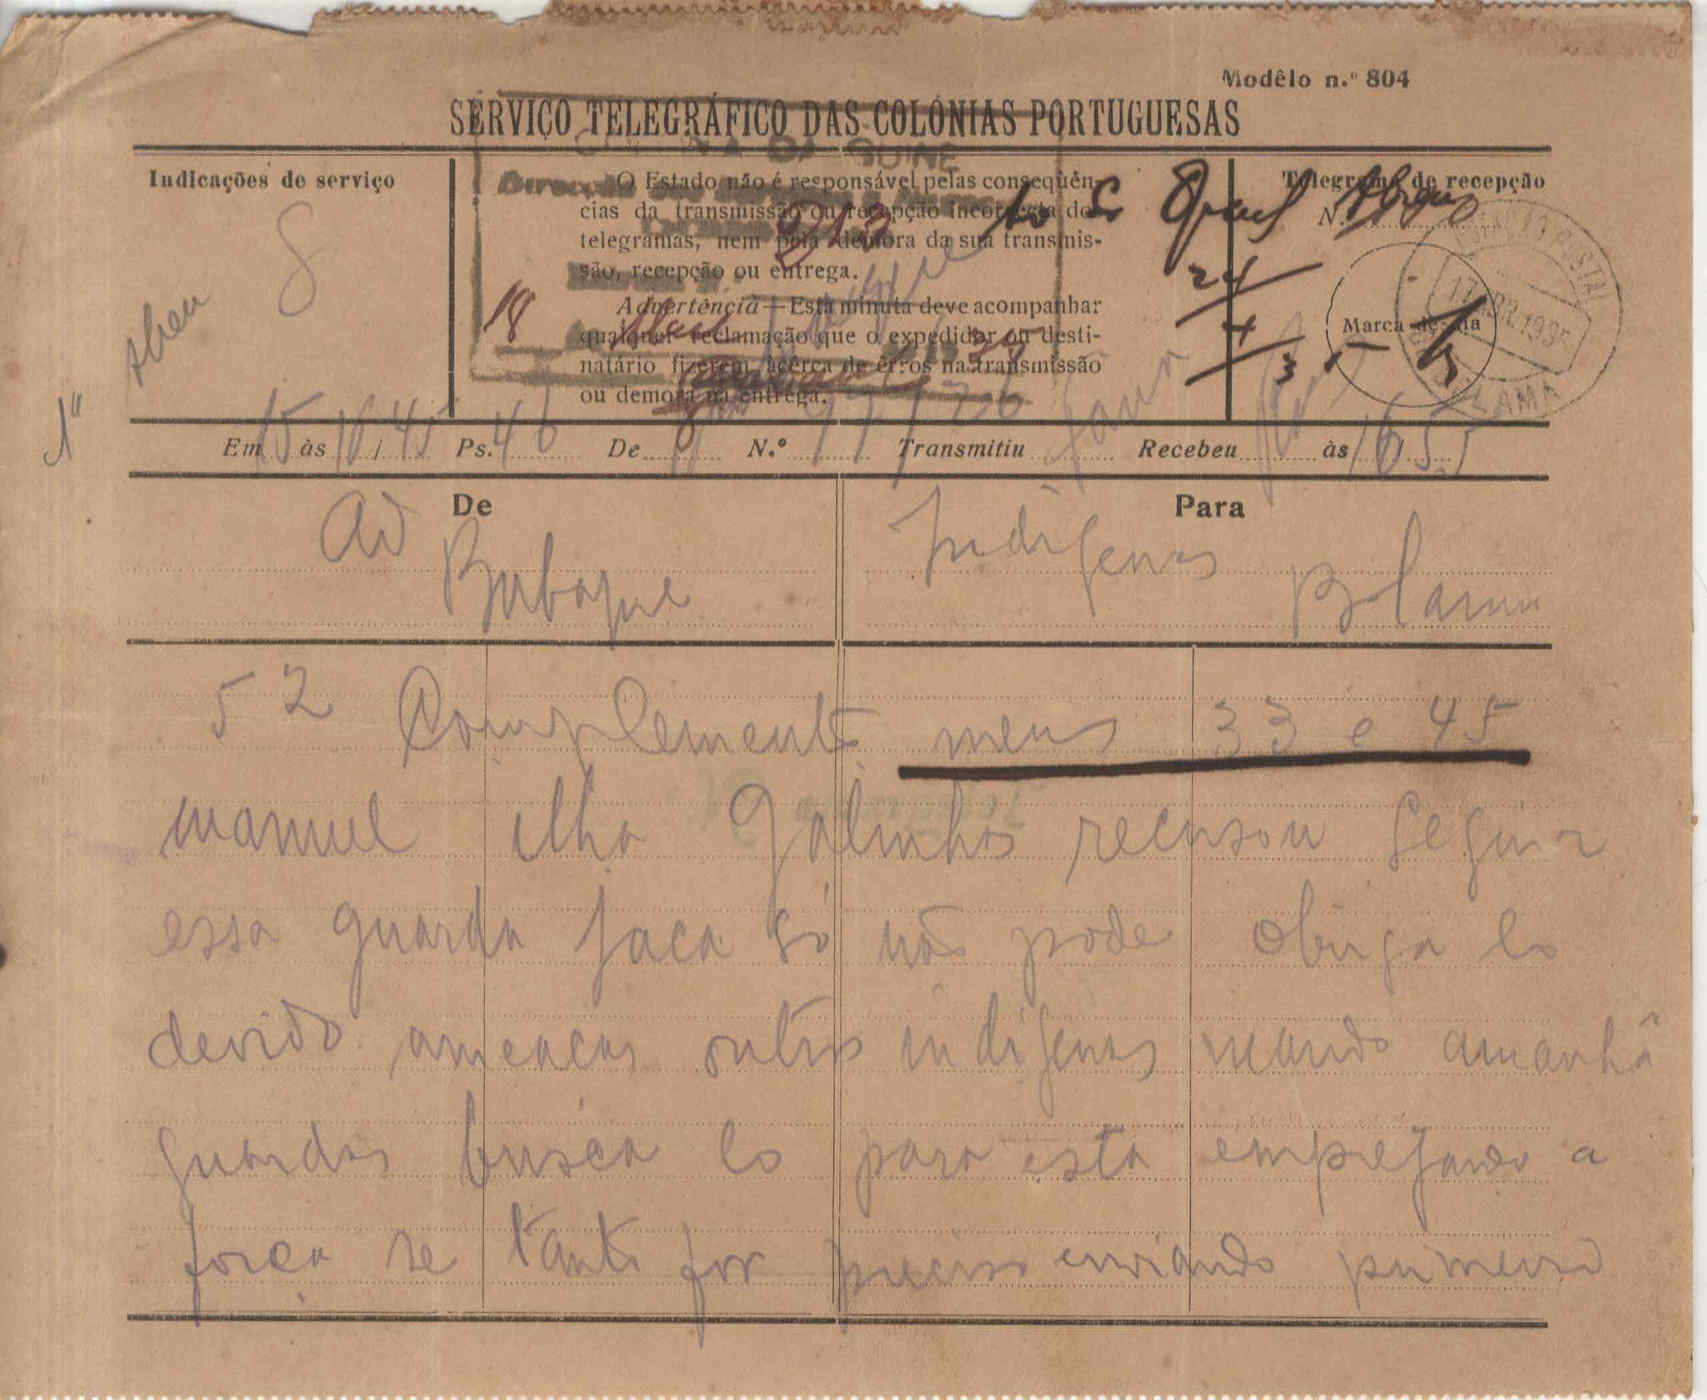 Modêlo n.º 804
SERVIÇO TELEGRÁFICO DAS COLÓNIAS PORTUGUESAS
Indicações de serviço
8
O Estado não é responsável pelas consequên-
cias da transmissão ou recepção incorrecta de
telegramas, nem pela demora da sua transmis-
são, recepção ou entrega.
Advertência—Esta minuta deve acompanhar
qualquer reclamação que o expedidor ou desti-
natário fizerem àcêrca de êrros na transmissão
ou demora na entrega.
GUINÉ
913
18 Abril 35
Telegrama de recepção
N.º
24
4
35
Marca do dia
17 ABR. 1935
BOLAMA
Abreu
Em 15 às 16/45 Ps. 46 De N.º Transmitiu Recebeu às 1655
De
Ad
Bubaque
Para
Indigenas
Bolama
52 Complemento meus 33 e 45
manuel ilha Galinhas recusou seguir
essa guarda faca só não pode obriga lo
devido ameaças outros indigenas mando amanhã
guardas busca lo para esta empregando a
força se tanto for preciso enviando primeiro